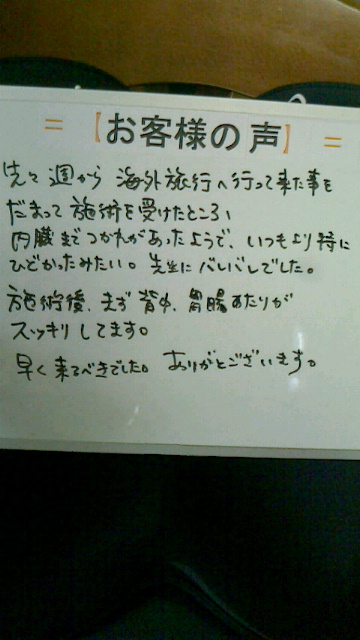 = 【お客様の声】 =
先々週から 海外旅行へ行って来た事を
だまって 施術を受けたところ、
内臓までつかれがあったようで、いつもより特に
ひどかったみたい。先生にバレバレでした。
施術後、まず背中、胃腸あたりが
スッキリしてます。
早く来るべきでした。ありがとうございます。